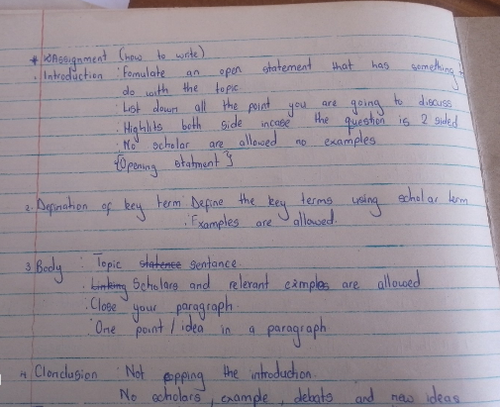 * Assignment (how to write)
. Introduction : Fomulate an open statement that has something
do with the topic
: List down all the point you are going to discuss
: Highlits both side incase the question is 2 sided
: No scholar are allowed no examples.
{Opening statment}
2. Defination of key term : Define the key terms using scholar term
: Examples are allowed.
3. Body : Topic statence sentance.
: Linking Scholars and relevant examples are allowed
: Close your paragraph.
: One point / idea in a paragraph
4. Clonclusion : Not the introduction.
No scholars, example, debats and new ideas